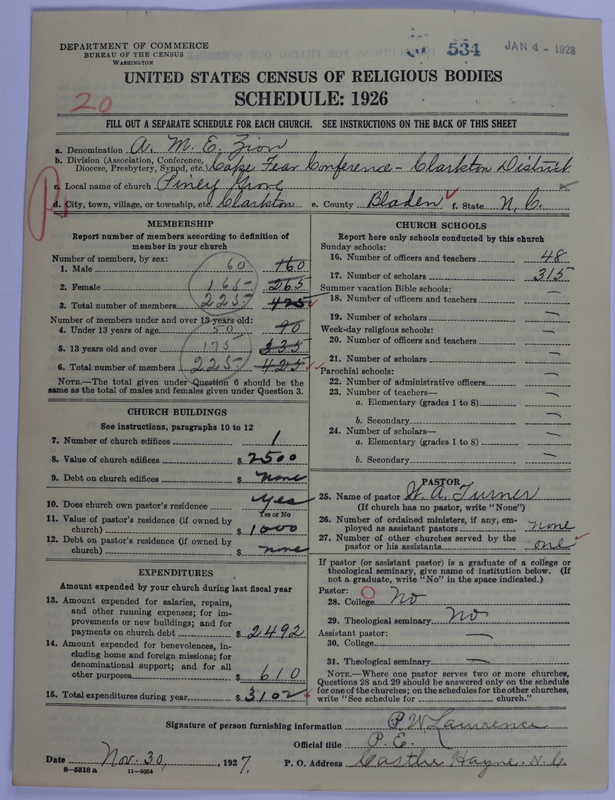 534 JAN 4 - 1928
DEPARTMENT OF COMMERCE
BUREAU OF THE CENSUS
WASHINGTON
UNITED STATES CENSUS OF RELIGIOUS BODIES
20
SCHEDULE: 1926
FILL OUT A SEPARATE SCHEDULE FOR EACH CHURCH. SEE INSTRUCTIONS ON THE BACK OF THIS SHEET
a. Denomination A. M. E. Zion
b. Division (Association, Conference, Diocese, Presbytery, Synod, etc.) Cape Fear Conference - Clarkton District
c. Local name of church Piney Grove
d. City, town, village, or township, etc. Clarkton e. County Bladen f. State N. C.
MEMBERSHIP
Report number of members according to definition of
member in your church
Number of members, by sex:
1. Male 60 160
2. Female 165 265
3. Total number of members 225 425
Number of members under and over 13 years old:
4. Under 13 years of age 50 90
5. 13 years old and over 175 335
6. Total number of members 225 425
NOTE.—The total given under Question 6 should be the
same as the total of males and females given under Question 3.
CHURCH BUILDINGS
See instructions, paragraphs 10 to 12
7. Number of church edifices 1
8. Value of church edifices $ 2500
9. Debt on church edifices $ none
10. Does church own pastor's residence yes
Yes or No
11. Value of pastor's residence (if owned by
church) $ 1000
12. Debt on pastor's residence (if owned by
church) $ none
EXPENDITURES
Amount expended by your church during last fiscal year
13. Amount expended for salaries, repairs,
and other running expenses; for im-
provements or new buildings; and for
payments on church debt $ 2492
14. Amount expended for benevolences, in-
cluding home and foreign missions; for
denominational support; and for all
other purposes $ 610
15. Total expenditures during year $ 3102
CHURCH SCHOOLS
Report here only schools conducted by this church
Sunday schools:
16. Number of officers and teachers 48
17. Number of scholars 315
Summer vacation Bible schools:
18. Number of officers and teachers —
19. Number of scholars —
Week-day religious schools:
20. Number of officers and teachers —
21. Number of scholars —
Parochial schools:
22. Number of administrative officers —
23. Number of teachers—
a. Elementary (grades 1 to 8) —
b. Secondary —
24. Number of scholars—
a. Elementary (grades 1 to 8) —
b. Secondary —
PASTOR
25. Name of pastor W. A. Turner
(If church has no pastor, write "None")
26. Number of ordained ministers, if any, em-
ployed as assistant pastors none
27. Number of other churches served by the
pastor or his assistants one
If pastor (or assistant pastor) is a graduate of a college or
theological seminary, give name of institution below. (If
not a graduate, write "No" in the space indicated.)
Pastor:
28. College No
29. Theological seminary No
Assistant pastor:
30. College —
31. Theological seminary —
NOTE.—Where one pastor serves two or more churches,
Questions 28 and 29 should be answered only on the schedule
for one of the churches; on the schedules for the other churches,
write "See schedule for ______ church."
Signature of person furnishing information P. W. Lawrence
Official title P. E.
Date Nov. 30, 1927. P. O. Address Castle Hayne. N. C.
8-5518 a 11-9054